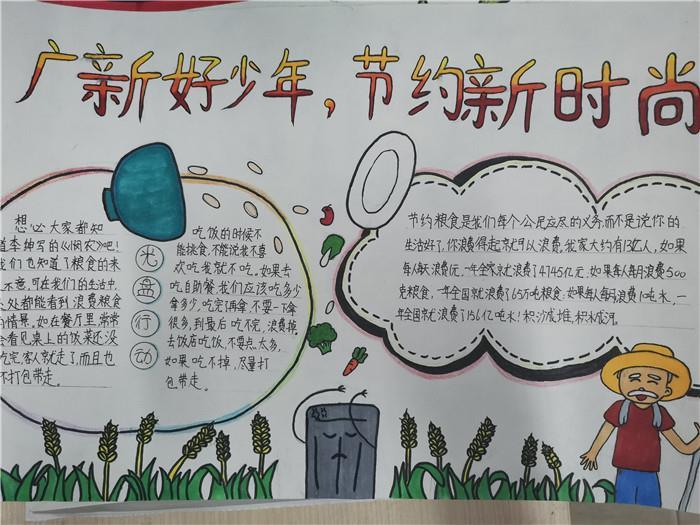 广新好少年，节约新时尚
想必大家都知
道李绅写的《悯农》吧！
我们也知道了粮食的来
之不意，可在我们的生活中，
处处都能看到浪费粮食
的情景，如在餐厅里，常常
会看见桌上的饭菜还没
吃完客人就走了，而且也
不打包带走。
光盘行动
吃饭的时候不
能挑食，不能说我不喜
欢吃我就不吃。如果去
吃自助餐我们应该吃多少
拿多少，吃完了再拿，不要一下拿
很多，到最后吃不完，浪费掉
去饭店吃饭，不要点太多，
如果吃不掉，尽量打
包带走。
节约粮食是我们每个公民应尽的义务，而不是说你的
生活好了，你浪费得起就可以浪费，我家大约有13亿人，如果
每人每天浪费1元，一年全家就浪费了4745亿元，如果每人每月浪费500
克粮食，一年全国就浪费了65万吨粮食；如果每人每月浪费1吨水，一
年全国就浪费了156亿吨水！积沙成堆，积水成河。